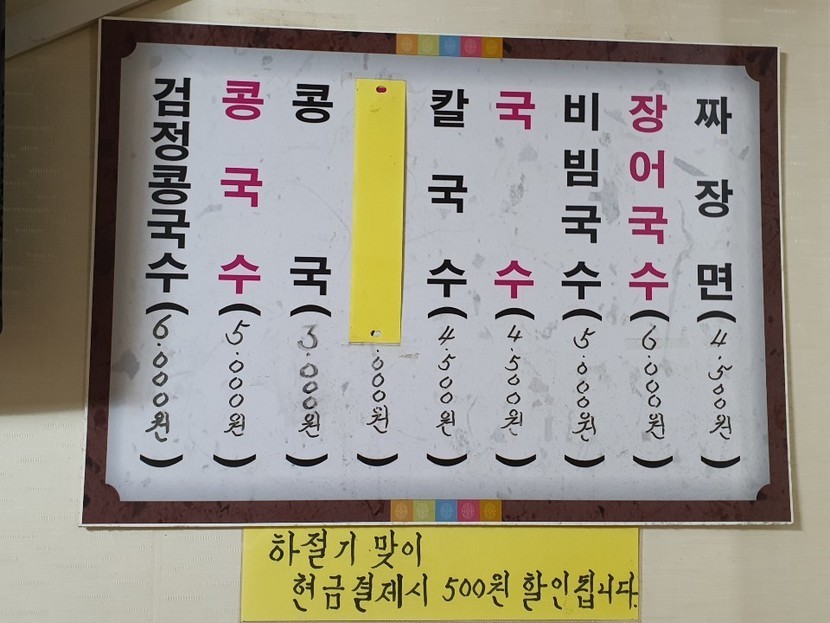 검정콩국수(6.000원)
콩국수(5.000원)
콩국(3.000원)
.000원)
칼국수(4.500원)
국수(4.500원)
비빔국수(5.000원)
장어국수(6.000원)
짜장면(4.500원)
하절기 맞이
현금결제시 500원 할인됩니다.